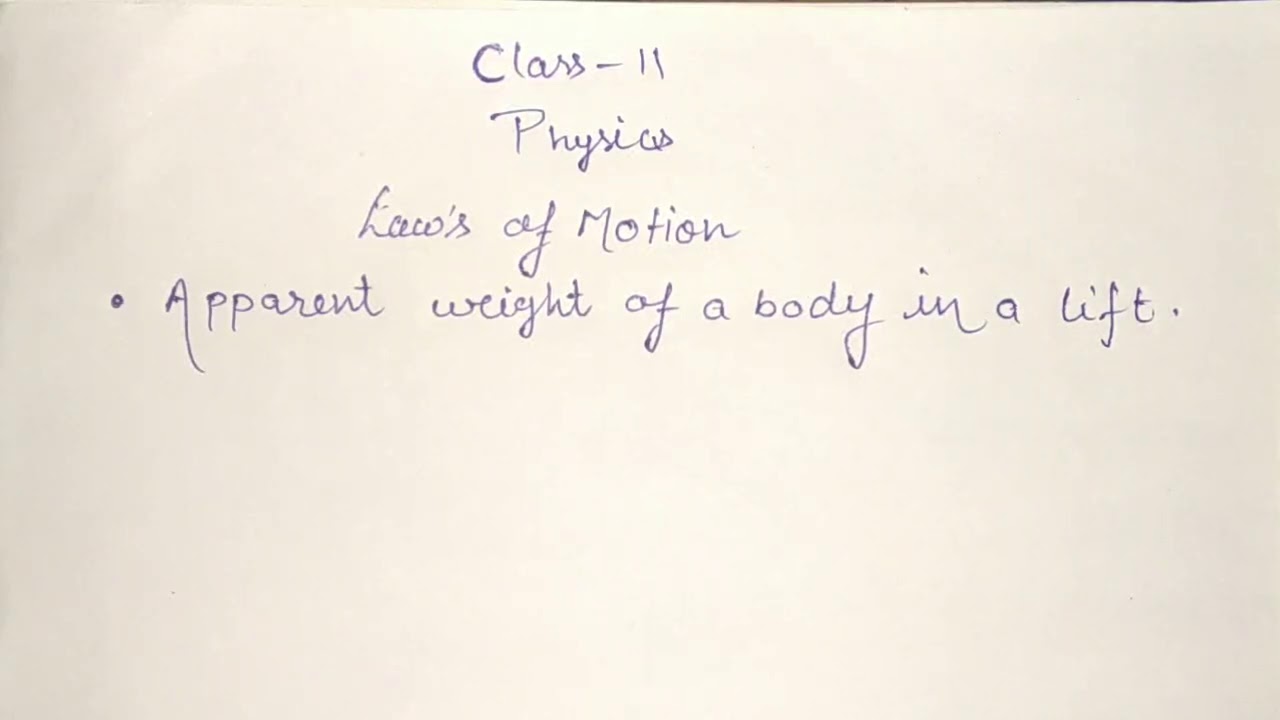 Class - 11
Physics
Law's of Motion
• Apparent weight of a body in a lift.